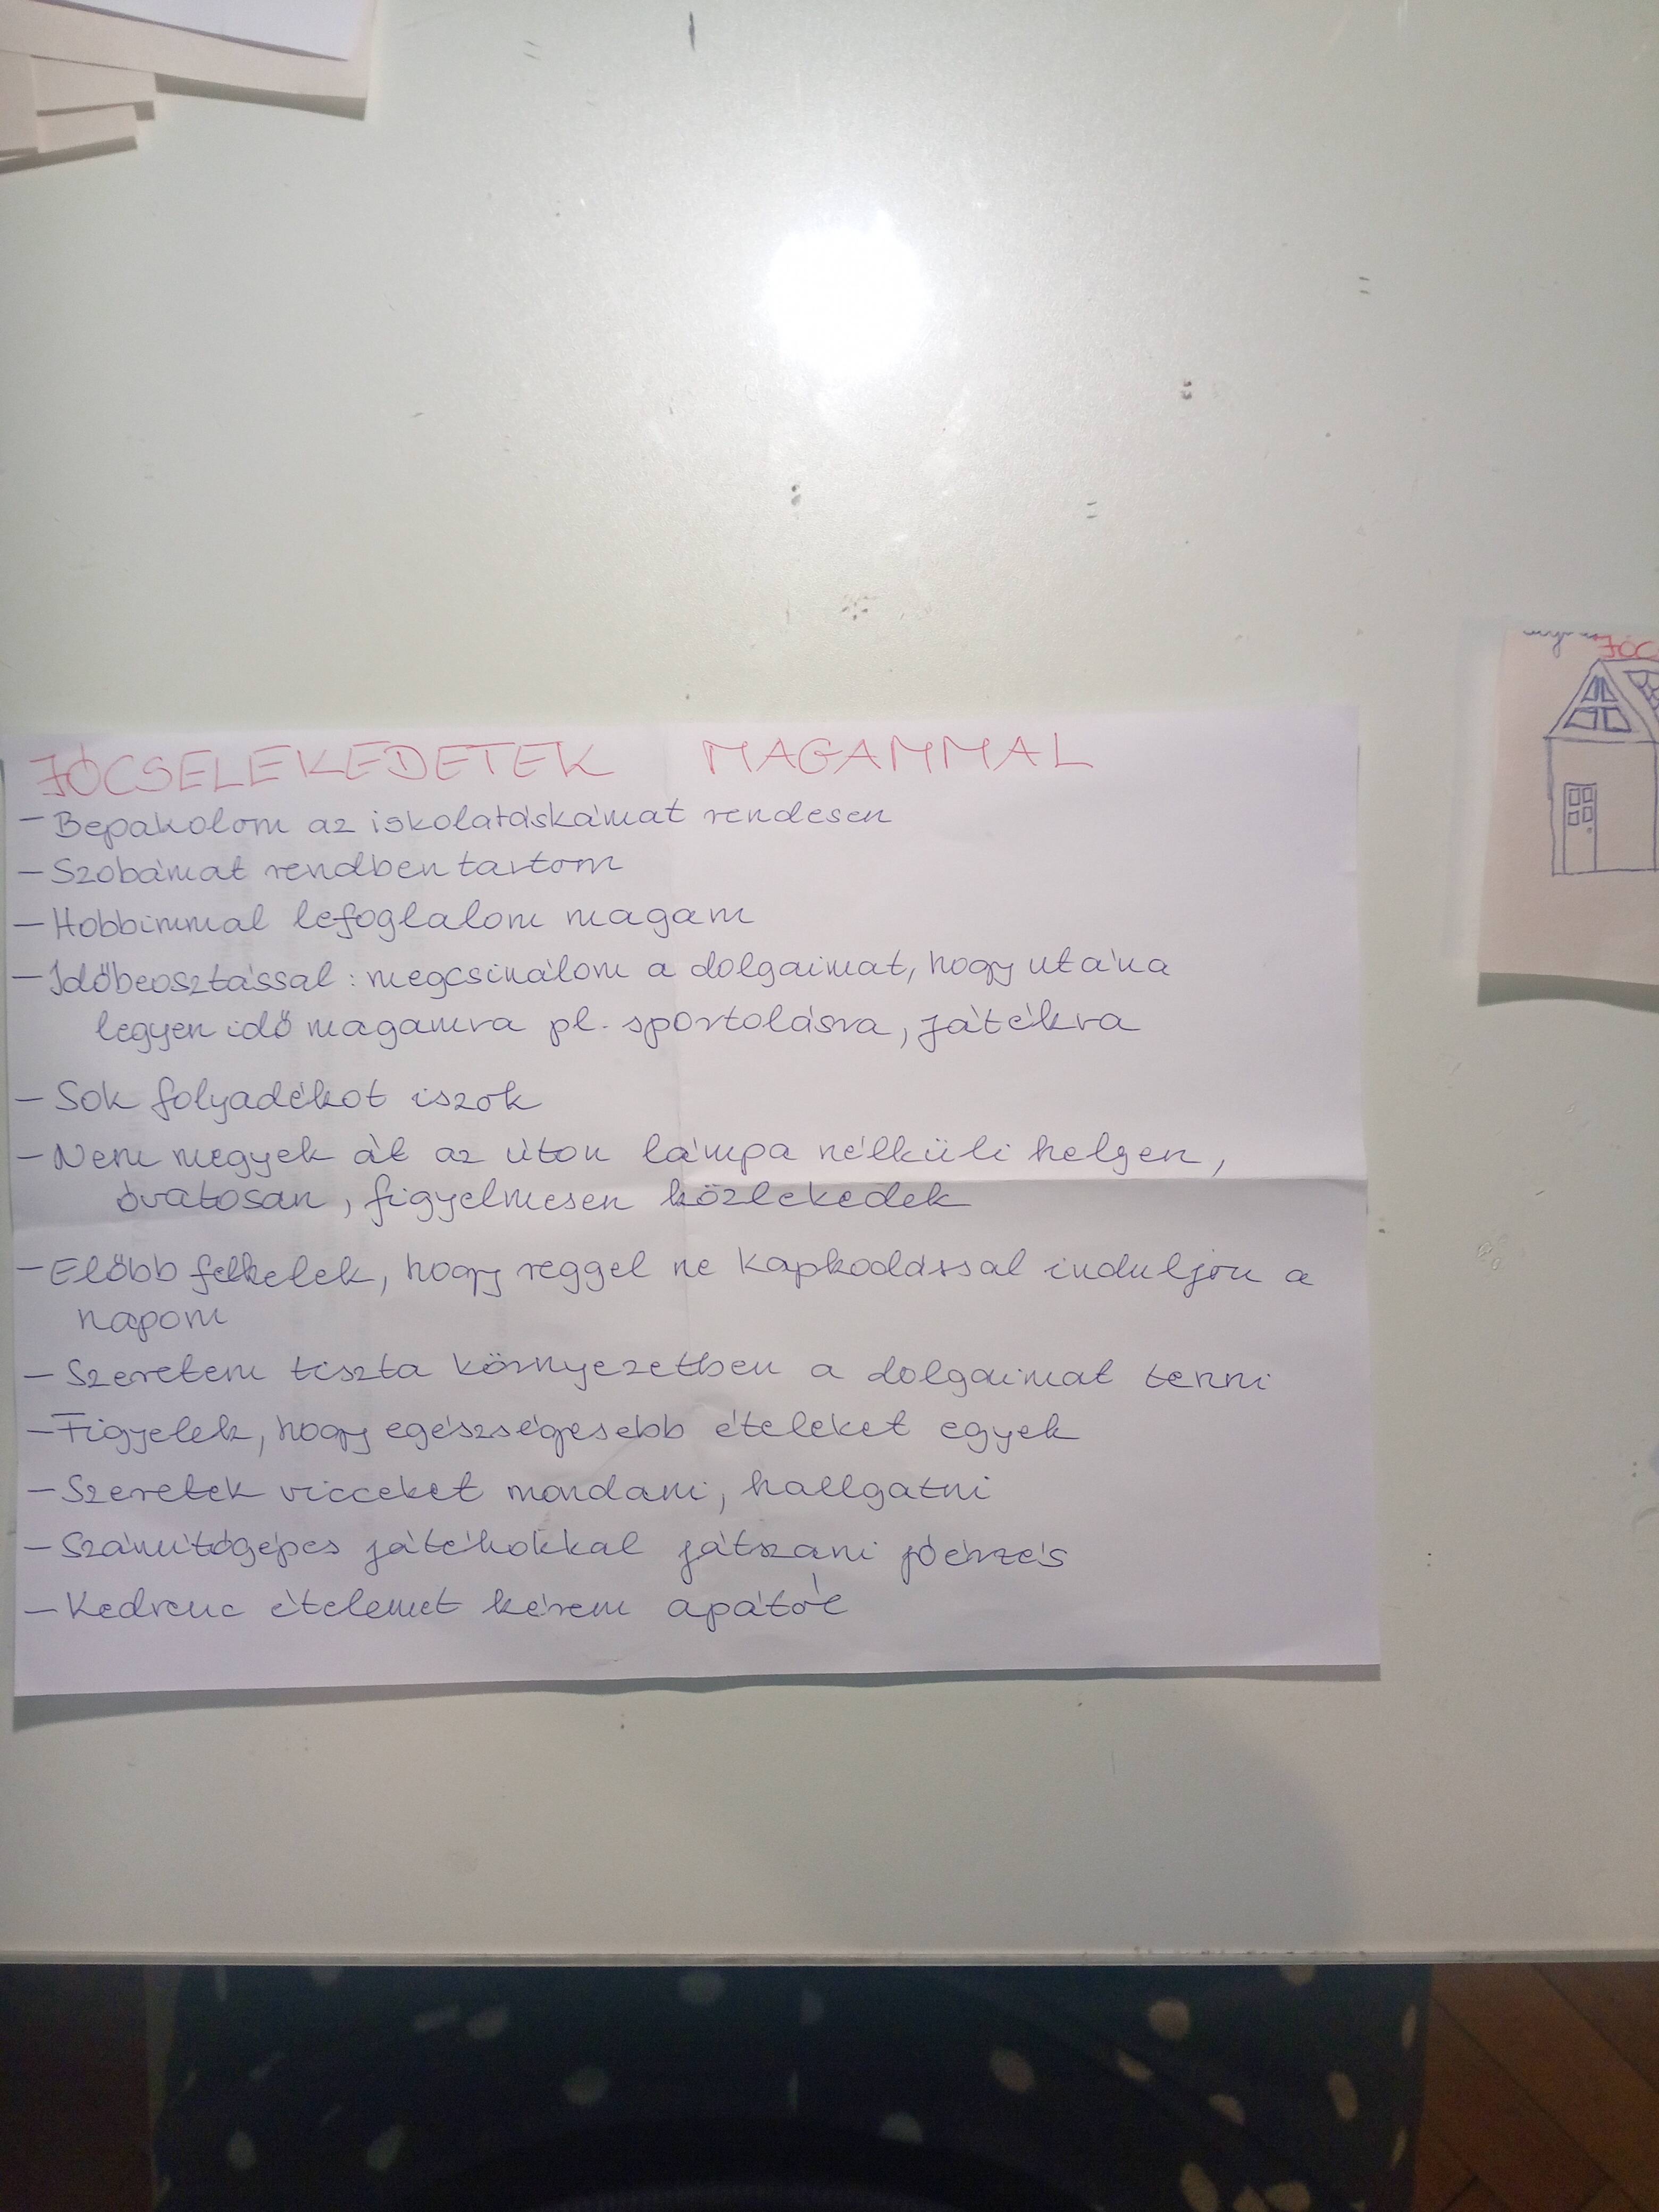 JÓCSELEKEDETEK MAGAMMAL
- Bepakolom az iskolatáskámat rendesen
- Szobámat rendben tartom
- Hobbimmal lefoglalom magam
- Időbeosztással: megcsinálom a dolgaimat, hogy utána
legyen idő magamra pl. sportolásra, játékra
- Sok folyadékot iszok
- Nem megyek át az úton lámpa nélküli helyen,
óvatosan, figyelmesen közlekedek
- Előbb felkelek, hogy reggel ne kapkodással induljon a
napom
- Szeretem tiszta környezetben a dolgaimat tenni
- Figyelek, hogy egészségesebb ételeket egyek
- Szeretek vicceket mondani, hallgatni
- Számítógépes játékokkal játszani jóérzés
- Kedvenc ételemet kérem apától
JÓC